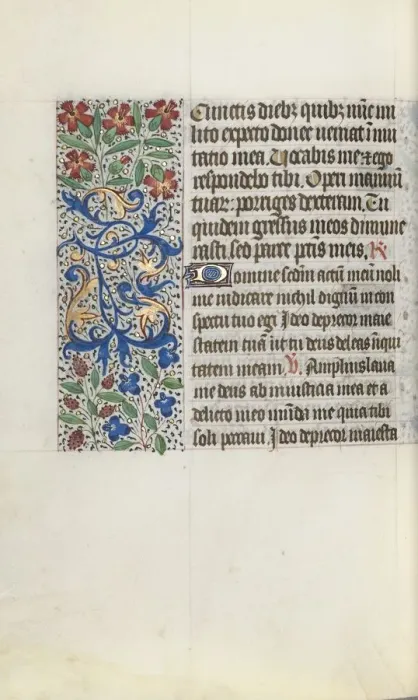 Cunctis diebꝫ quibꝫ nūc mi
lito expecto donec ueniat ī mu
tatio mea. Uocabis me ⁊ ego
respondebo tibi. Operi manuū
tuaꝝ porriges dexteram. Tu
quidem gressus meos dinume
rasti sed parce pctis meis. R
Domine scd̄m actū meū noli
me iudicare nichil dignū in con
spectu tuo egi Ideo deprecor maie
statem tuā ut tu deus deleas īiqui
tatem meam. V. Amplius laua
me deus ab iniusticia mea et a
delicto meo mūda me quia tibi
soli peccaui. Ideo deprecor maiesta